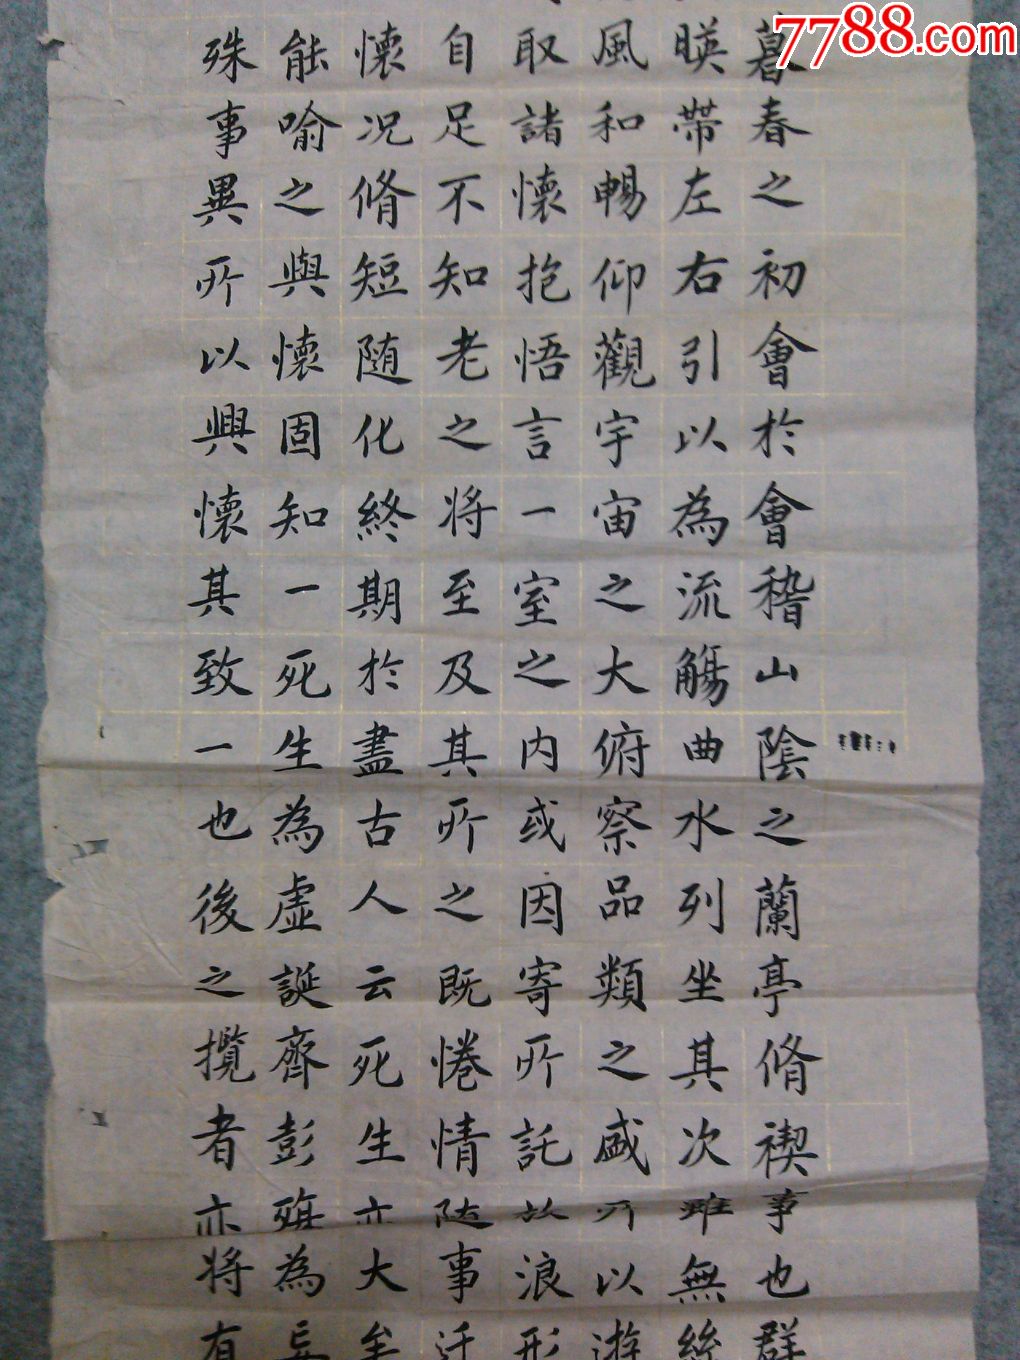 7788.com
暮春之初會於會稽山陰之蘭亭脩禊事也群
暎帶左右引以為流觴曲水列坐其次雖無絲
風和暢仰觀宇宙之大俯察品類之盛所以遊
取諸懷抱悟言一室之內或因寄所託放浪形
自足不知老之將至及其所之既惓情随事迁
懷况脩短随化終期於盡古人云死生亦大
能喻之興懷固知一死生為虛誕齊彭殤為妄
殊事異所以興懷其致一也後之攬者亦將有